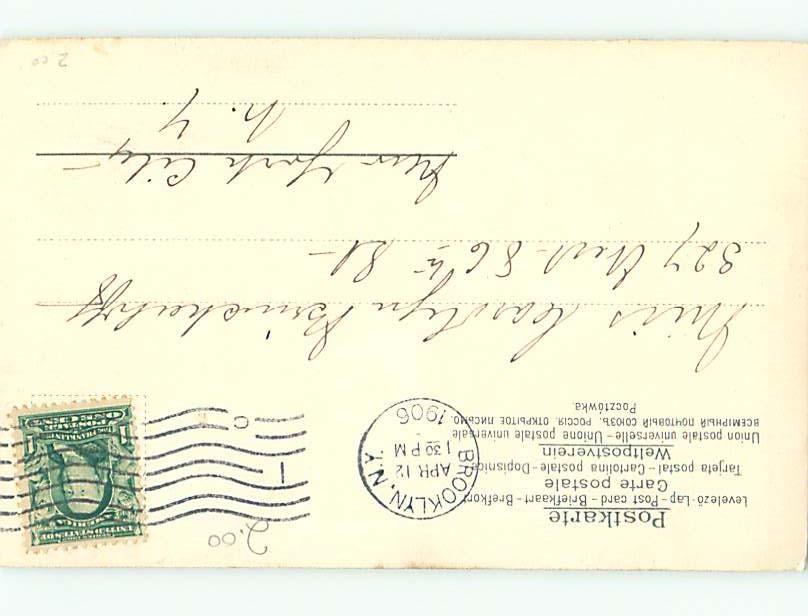 2.00
Postkarte
Levelező-Lap - Post card - Briefkaart - Brefkort
Carte postale
Tarjeta postal - Cartolina postale - Dopisnice
Weltpostverein
Union postale universelle - Unione postale universale
ВСЕМІРНЫЙ ПОЧТОВЫЙ СОЮЗЪ. РОССІЯ. ОТКРЫТОЕ ПИСЬМО.
Pocztówka.
BROOKLYN, N.Y.
APR 12
1 30 PM
1906
1
C
UNITED STATES OF
AMERICA
FRANKLIN
POSTAGE
1 1
ONE CENT
Miss Carolyn
327 West 86th St
New York City
N. Y.
2.00